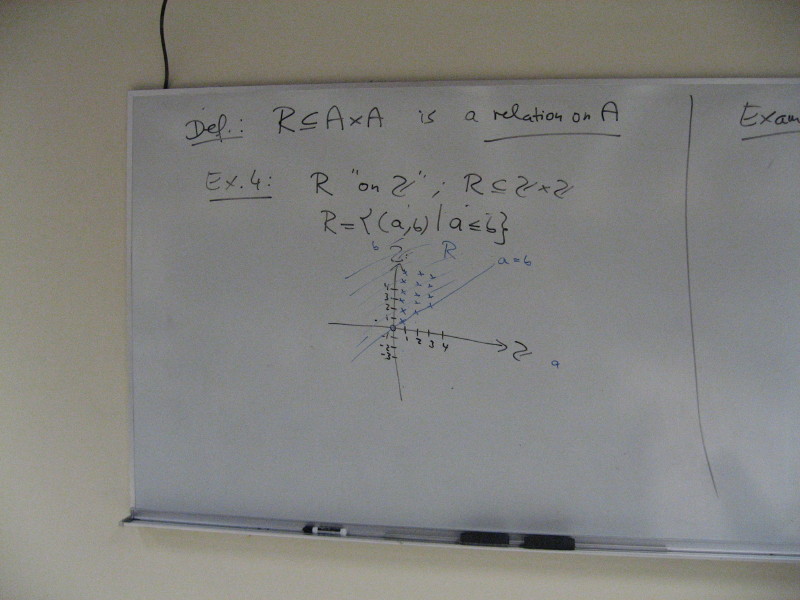 Def.: R ⊆ A × A is a relation on A
Exam
Ex. 4: R "on ℤ"; R ⊆ ℤ × ℤ
R = {(a,b) | a ≤ b}
b ℤ R
a = b
4
3
2
1
1 2 3 4
-1
-2
-3
ℤ
a